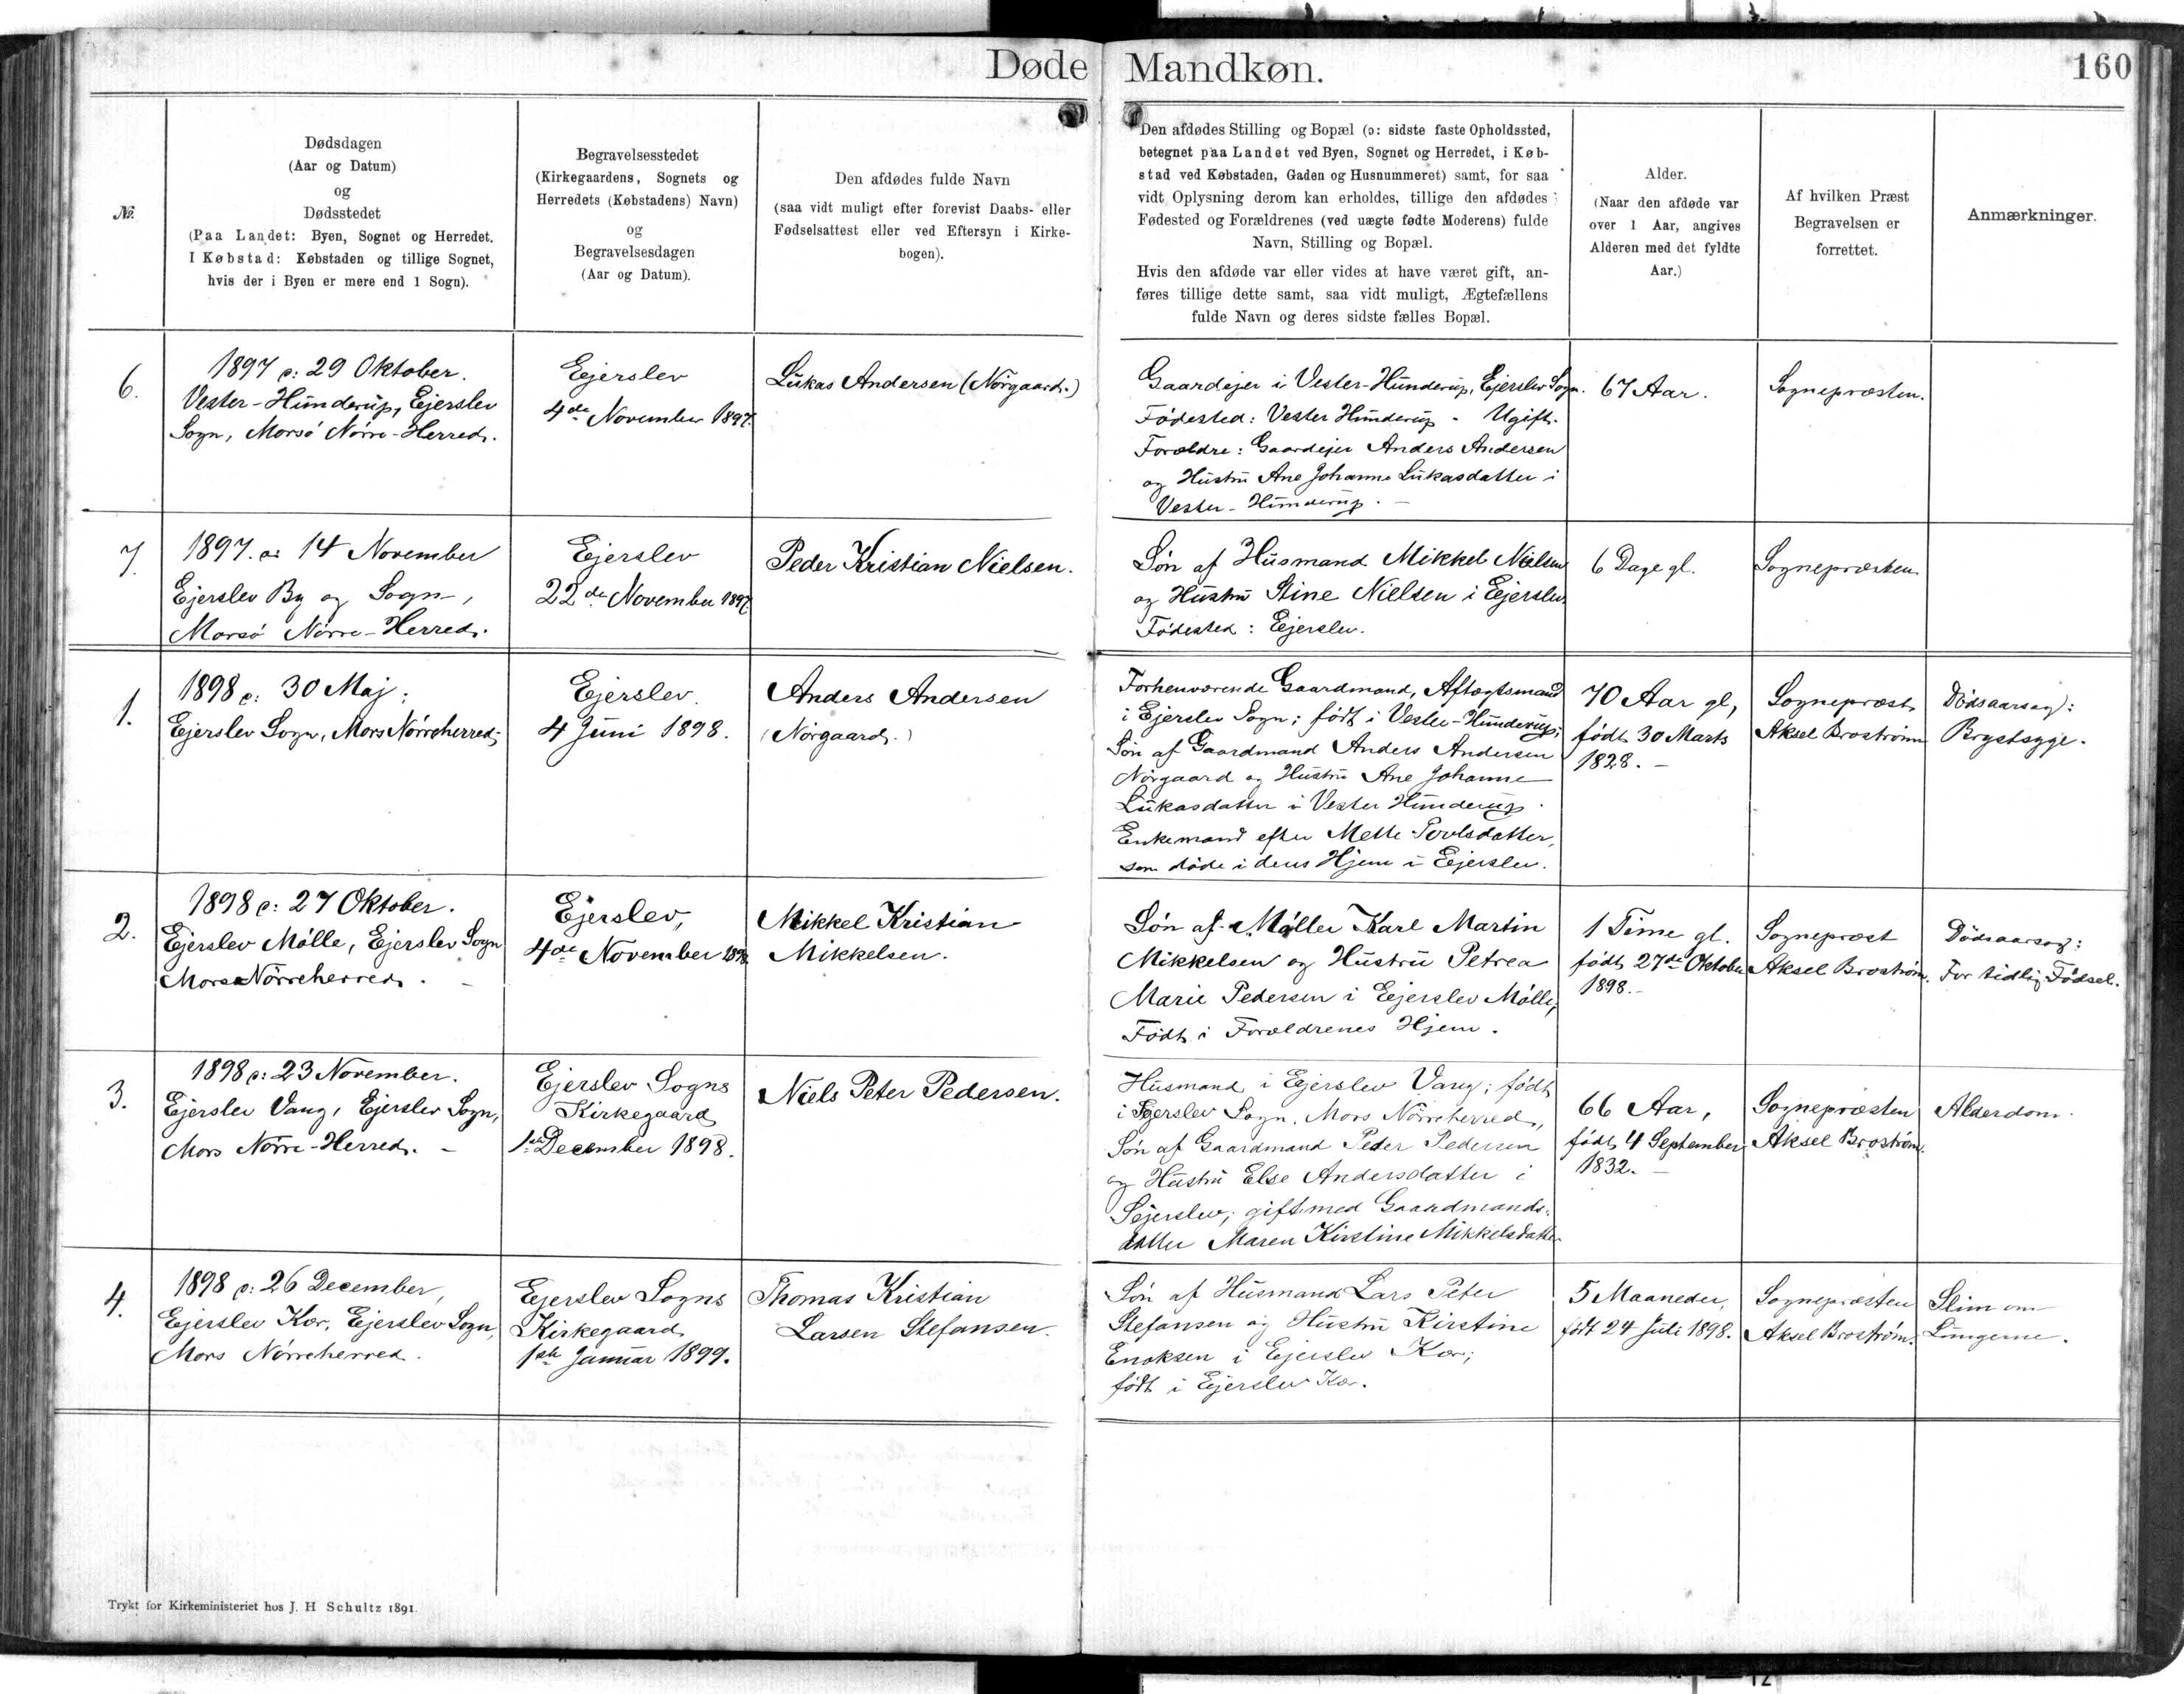 Døde Mandkøn.
160
№.
Dødsdagen
(Aar og Datum)
og
Dødsstedet
(Paa Landet: Byen, Sognet og Herredet.
I Købstad: Købstaden og tillige Sognet,
hvis der i Byen er mere end 1 Sogn).
Begravelsesstedet
(Kirkegaardens, Sognets og
Herredets (Købstadens) Navn)
og
Begravelsesdagen
(Aar og Datum).
Den afdødes fulde Navn
(saa vidt muligt efter forevist Daabs- eller
Fødselsattest eller ved Eftersyn i Kirke-
bogen).
Den afdødes Stilling og Bopæl (ɔ: sidste faste Opholdssted,
betegnet paa Landet ved Byen, Sognet og Herredet, i Køb-
stad ved Købstaden, Gaden og Husnummeret) samt, for saa
vidt Oplysning derom kan erholdes, tillige den afdødes
Fødested og Forældrenes (ved uægte fødte Moderens) fulde
Navn, Stilling og Bopæl.
Hvis den afdøde var eller vides at have været gift, an-
føres tillige dette samt, saa vidt muligt, Ægtefællens
fulde Navn og deres sidste fælles Bopæl.
Alder.
(Naar den afdøde var
over 1 Aar, angives
Alderen med det fyldte
Aar.)
Af hvilken Præst
Begravelsen er
forrettet.
Anmærkninger.
6.
1897 ɔ: 29 Oktober.
Vester-Hunderup, Ejerslev
Sogn, Morsø Nørre-Herred.
Ejerslev
4de November 1897.
Lukas Andersen (Nørgaard.)
Gaardejer i Vester-Hunderup, Ejerslev Sogn.
Fødested: Vester Hunderup - Ugift.
Forældre: Gaardejer Anders Andersen
og Hustru Ane Johanne Lukasdatter i
Vester-Hunderup. -
67 Aar.
Sognepræsten.
7.
1897. ɔ: 14 November
Ejerslev By og Sogn,
Morsø Nørre-Herred.
Ejerslev
22de November 1897.
Peder Kristian Nielsen.
Søn af Husmand Mikkel Nielsen
og Hustru Stine Nielsen i Ejerslev
Fødested: Ejerslev.
6 Dage gl.
Sognepræsten
1.
1898 ɔ: 30 Maj;
Ejerslev Sogn, Mors Nørreherred;
Ejerslev.
4 Juni 1898.
Anders Andersen
(Nørgaard.)
Forhenværende Gaardmand, Aftægtsmand
i Ejerslev Sogn; født i Vester-Hunderup;
Søn af Gaardmand Anders Andersen
Nørgaard og Hustru Ane Johanne
Lukasdatter i Vester Hunderup.
Enkemand efter Mette Povlsdatter,
som døde i deres Hjem i Ejerslev.
70 Aar gl,
født 30 Marts
1828. -
Sognepræst
Aksel Brostrøm
Dødsaarsag:
Brystsyge.
2.
1898 ɔ: 27 Oktober.
Ejerslev Mølle, Ejerslev Sogn
Mors Nørreherred. -
Ejerslev,
4de November 1898
Mikkel Kristian
Mikkelsen.
Søn af Møller Karl Martin
Mikkelsen og Hustru Petrea
Marie Pedersen i Ejerslev Mølle,
Født i Forældrenes Hjem.
1 Time gl.
født 27de Oktober
1898. -
Sognepræst
Aksel Brostrøm.
Dødsaarsag:
For tidlig Fødsel.
3.
1898 ɔ: 23 November.
Ejerslev Vang, Ejerslev Sogn,
Mors Nørre-Herred. -
Ejerslev Sogns
Kirkegaard
1ste December 1898.
Niels Peter Pedersen.
Husmand i Ejerslev Vang; født
i Sejerslev Sogn, Mors Nørreherred,
Søn af Gaardmand Peder Pedersen
og Hustru Else Andersdatter i
Sejerslev; gift med Gaardmands-
datter Maren Kirstine Mikkelsdatter
66 Aar,
født 4 September
1832. -
Sognepræsten
Aksel Brostrøm.
Alderdom.
4.
1898 ɔ: 26 December,
Ejerslev Kær, Ejerslev Sogn,
Mors Nørreherred.
Ejerslev Sogns
Kirkegaard
1ste Januar 1899.
Thomas Kristian
Larsen Stefansen.
Søn af Husmand Lars Peter
Stefansen og Hustru Kirstine
Enoksen i Ejerslev Kær;
født i Ejerslev Kær.
5 Maaneder,
født 24 Juli 1898.
Sognepræsten
Aksel Brostrøm.
Slim om
Lungerne.
Trykt for Kirkeministeriet hos J. H Schultz 1891.